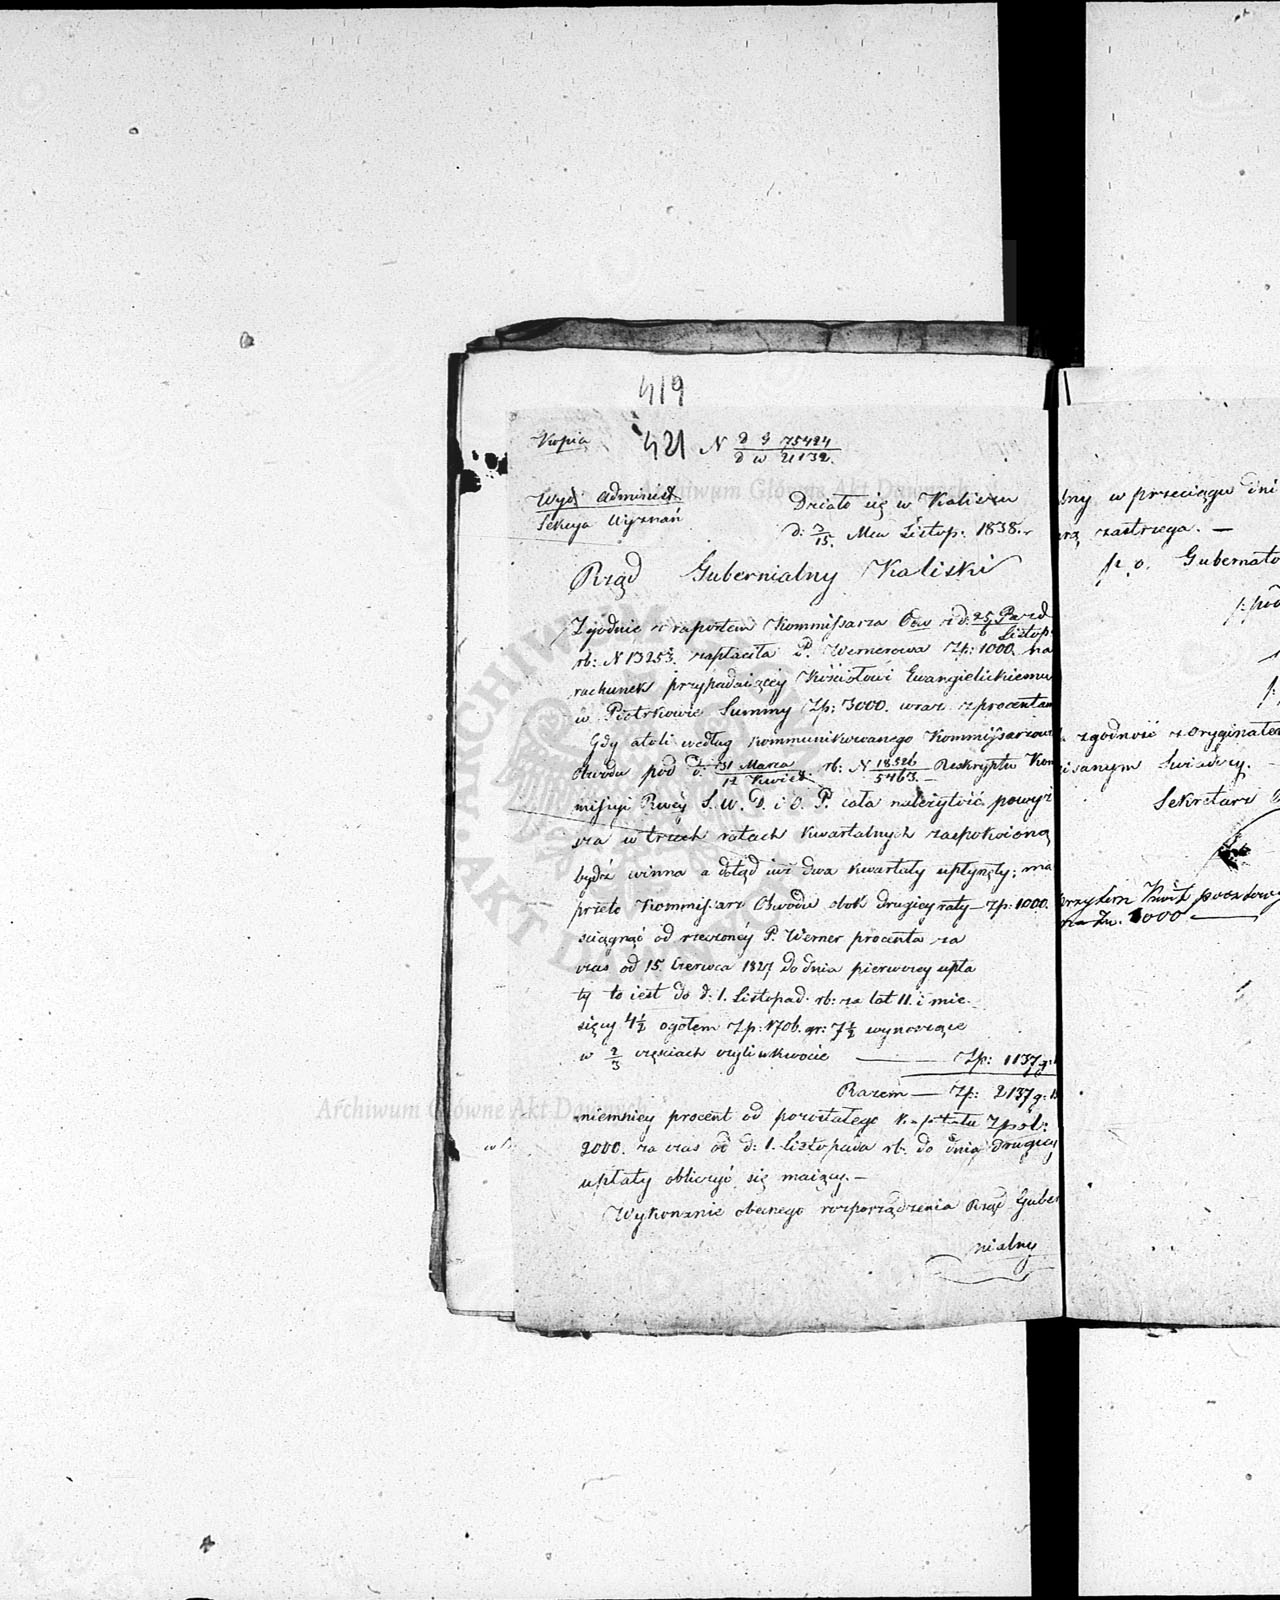 419
Kopia 421 N D G 75424
D W 21132.
Wydź Administ
Sekcya Wyznań
Działo się w Kaliszu
d. 3/15. Mca Listop: 1838.
Rząd Gubernialny Kaliski
Zgodnie z raportem Kommissarza Obw z d: 25 Pazd
6 Listop:
rb: N 13253. zapłaciła P. Wernerowa Zp: 1000. na
rachunek przypadaiącey Kościołowi Ewangielickiemu
w Piotrkowie Summy Zp: 3000. wraz z procentam
Gdy atoli według kommunikowanego Kommissarzowi
Obwodu pod d: 31 Marca
12 Kwiet. rb: N 18526
5463. Reskryptu Kom
missyi Rwey S. W. D. i O. P. cała należytość powyż
sza w trzech ratach kwartalnych zaspokoioną
bydź winna a dotąd iuż dwa kwartały upłynęły; ma
przeto Kommissarz Obwodu obok drugiey raty — Zp: 1000.
ściągnąć od rzeczoney P. Werner procenta za
czas od 15. Czerwca 1827 do dnia pierwszey upła
ty to iest do d: 1. Listopad. rb: za lat 11. i mie-
sięcy 4½ ogółem Zp: 1706. gr: 7½ wynoszące
w 2/3 częściach czyli w kwocie — Zp: 1137 g:
Razem — Zp: 2137 g:
niemniey procent od pozostałego kapitału Zpol:
2000. za czas od d: 1. Listopada rb. do dnia drugiey
upłaty obliczyć się maiący. —
Wykonanie obecnego rozporządzenia Rząd Guber
nialny
lny w przeciągu dni
rz zastrzega. —
p. o. Gubernato
zgodność z Oryginałem
isanym świadczy. —
Sekretarz
przytem Kwit pocztowy
na Zł. 1000 —